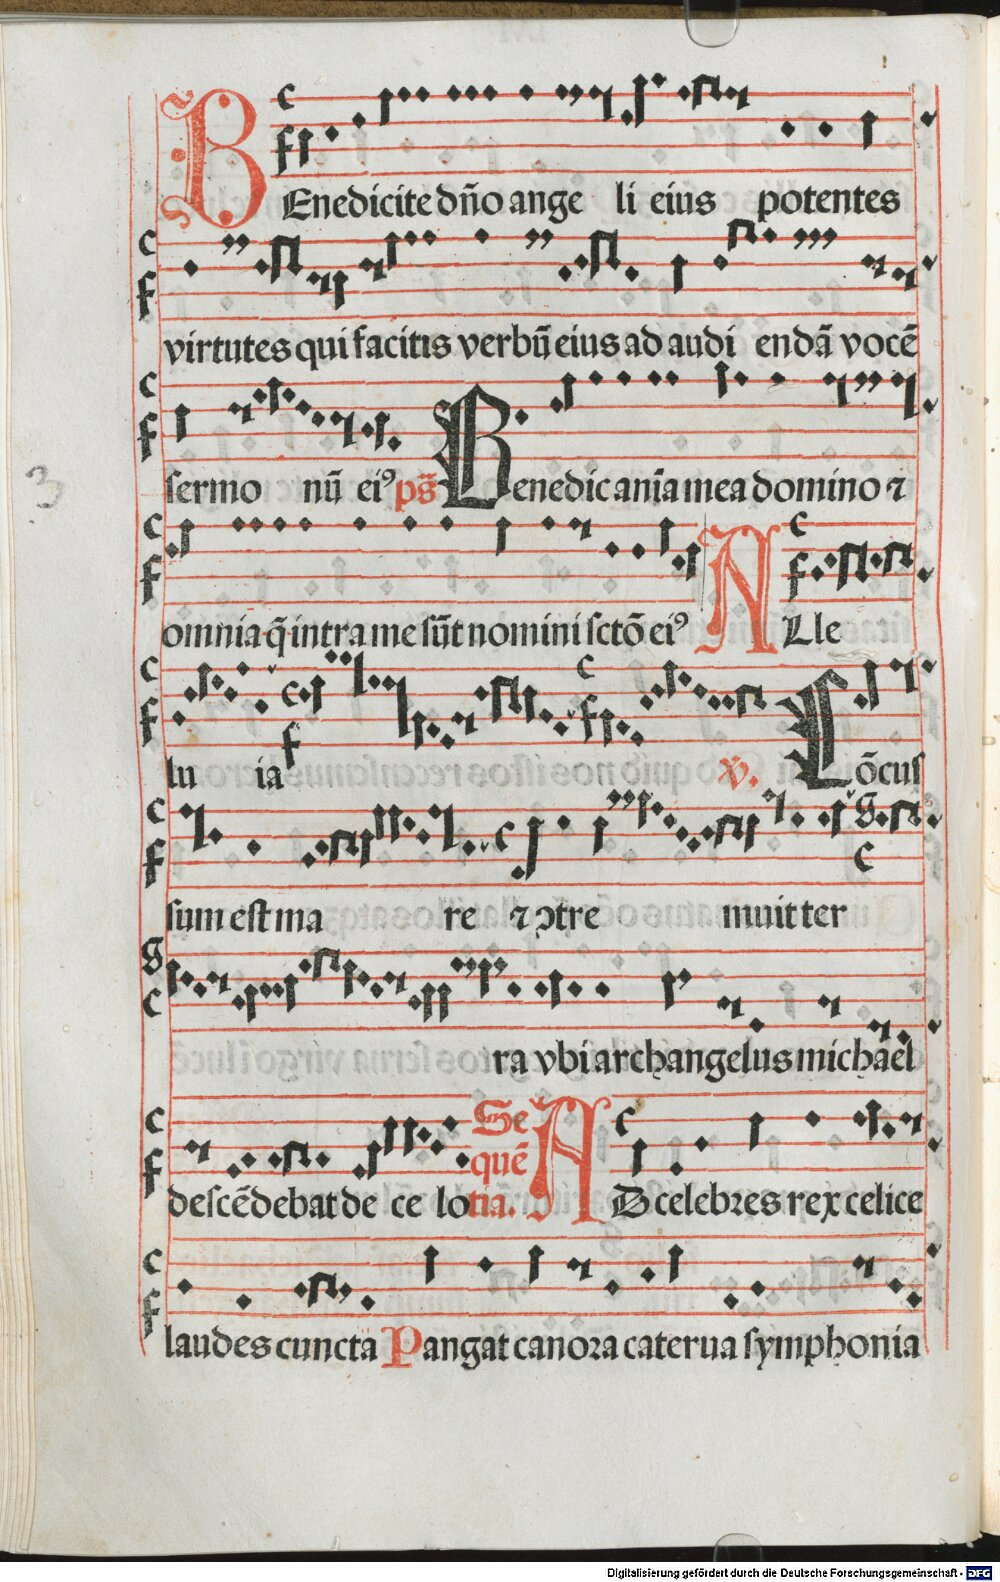 BEnedicite dño ange li eius potentes
virtutes qui facitis verbū eius ad audi endā vocē
sermo nū eiꝰ ps̄ Benedic aīa mea domino ⁊
omnia q̄ intra me sūt nomini sctō eiꝰ ALle
lu ia v̄. Cōcus
sum est ma re ⁊ ↄtre muit ter
ra vbi archangelus michael
descēdebat de ce lo Se quē tia. AD celebres rex celice
laudes cuncta Pangat canora caterua symphonia
3
Digitalisierung gefördert durch die Deutsche Forschungsgemeinschaft - DFG